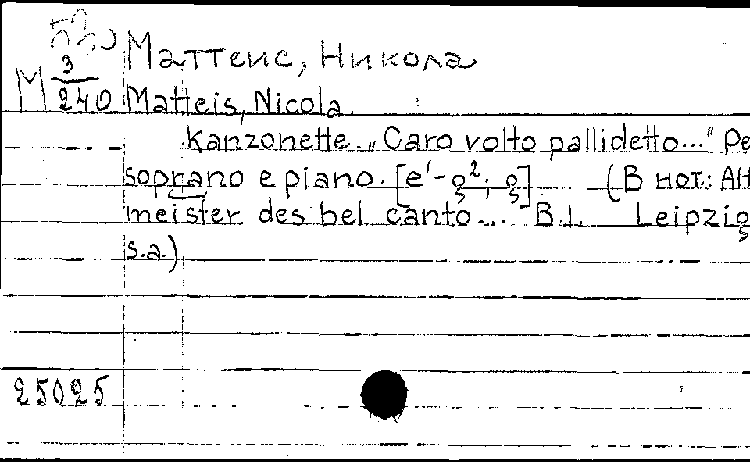 Маттеис, Никола
М 3/240
Matteis, Nicola
Kanzonette „Caro volto pallidetto..." Pe
soprano e piano. [e¹-g²; g] (В нот.: Alt
meister des bel canto... B.I. Leipzig
s.a.)
25025